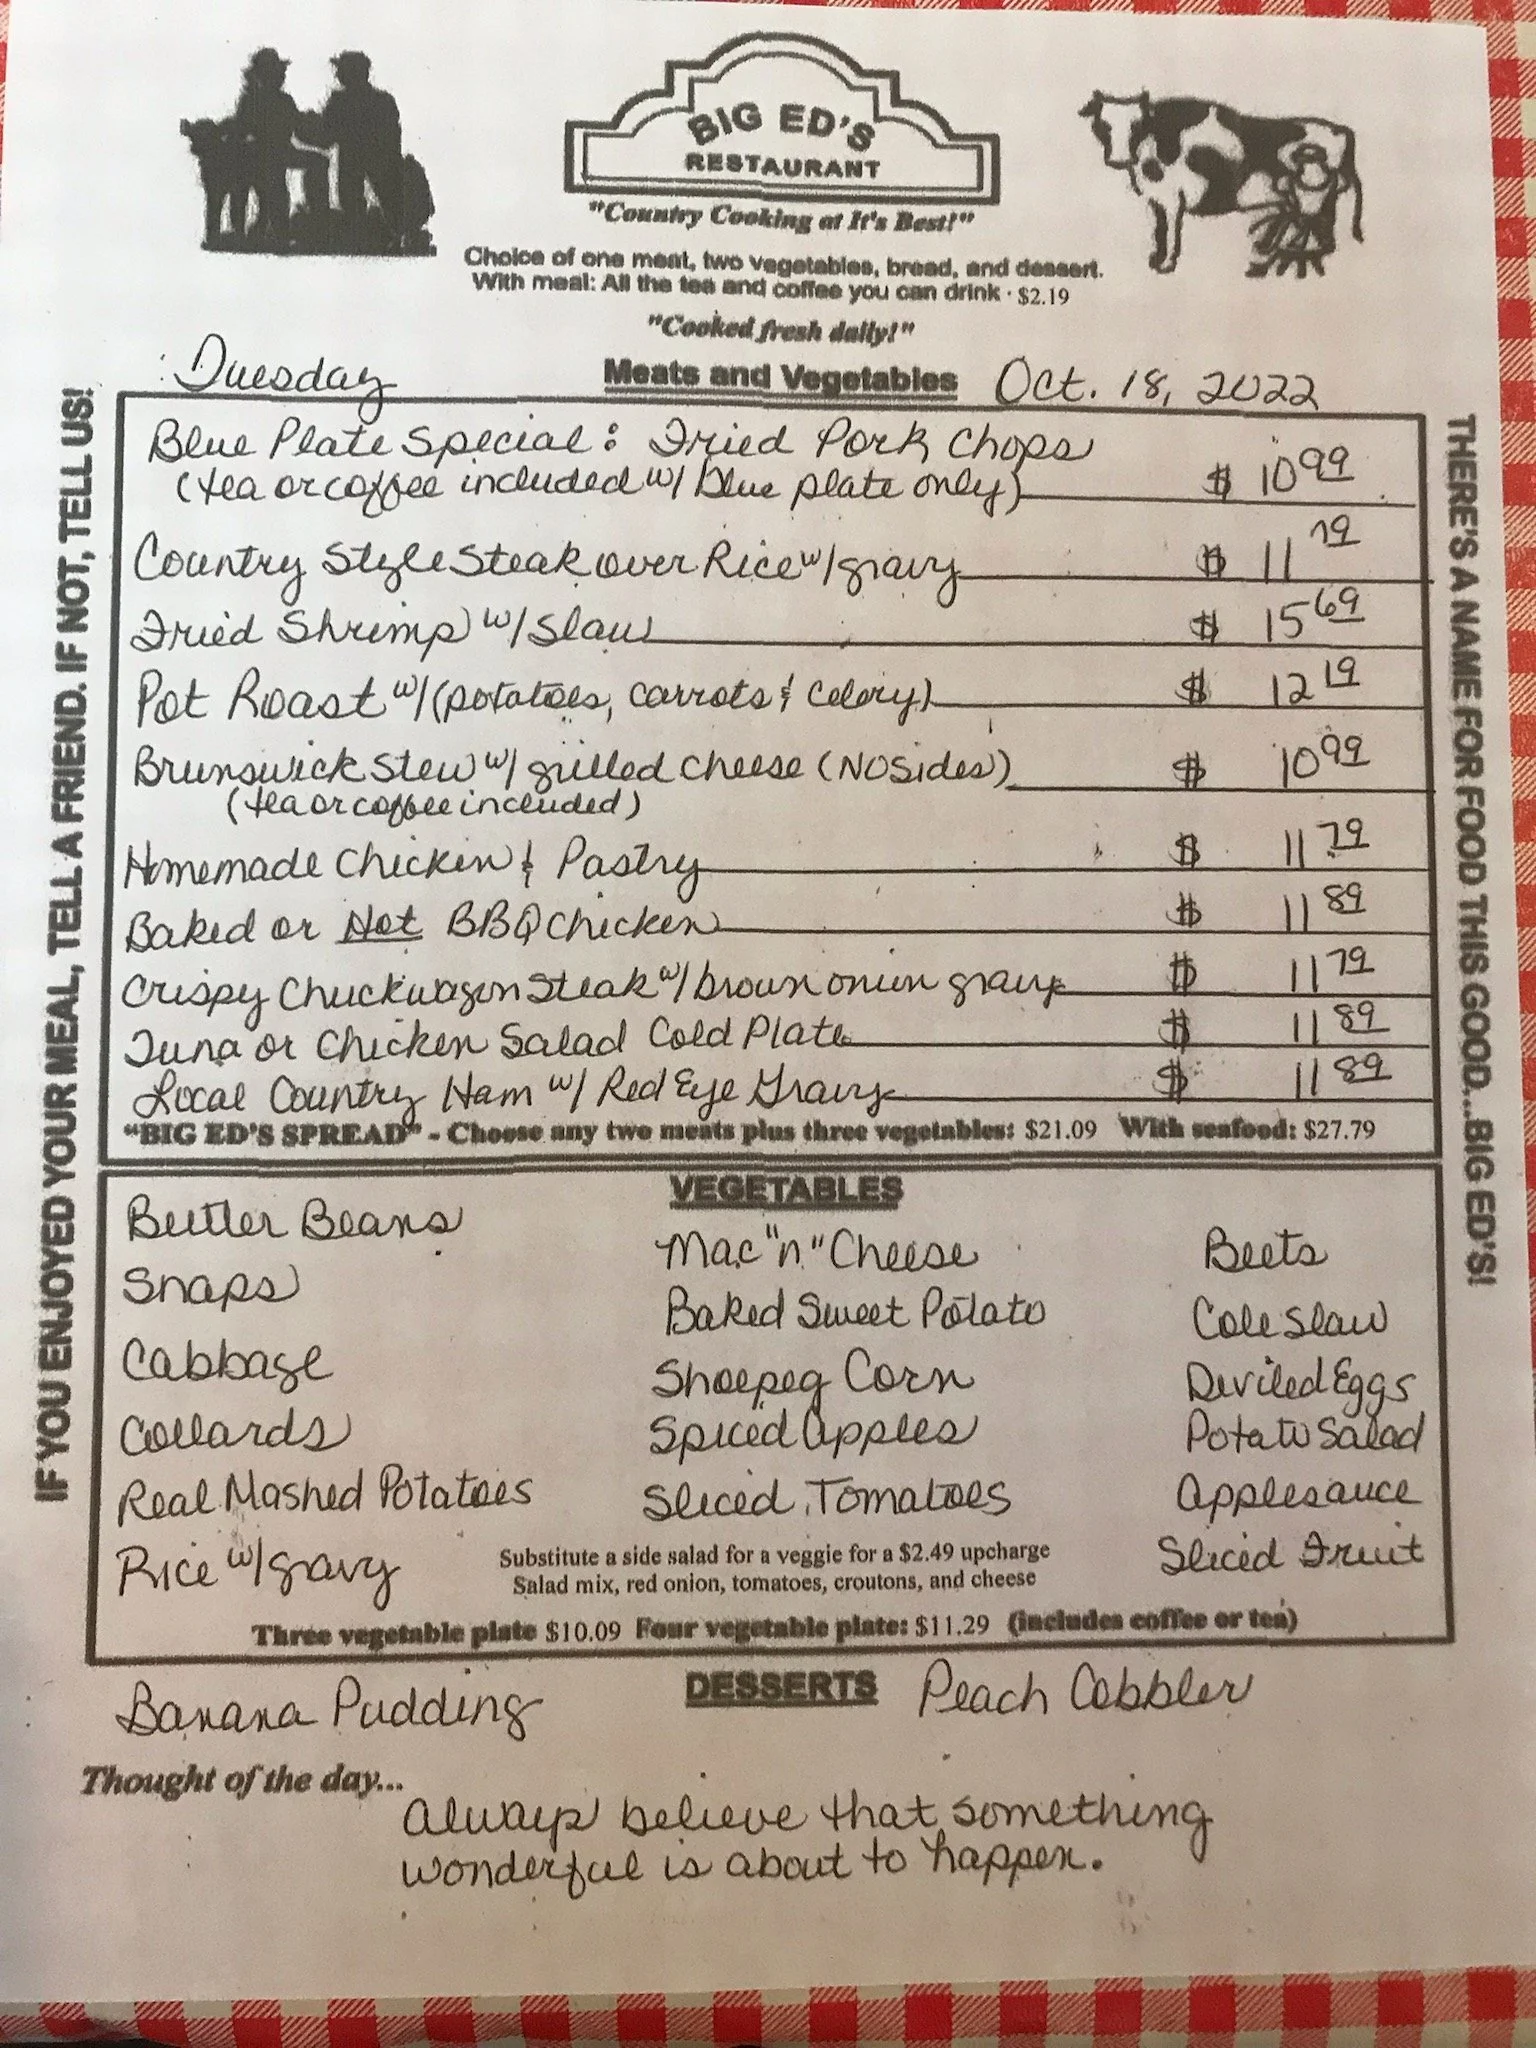 BIG ED'S
RESTAURANT
"Country Cooking at It's Best!"
Choice of one meat, two vegetables, bread, and dessert.
With meal: All the tea and coffee you can drink · $2.19
"Cooked fresh daily!"
Tuesday Meats and Vegetables Oct. 18, 2022
IF YOU ENJOYED YOUR MEAL, TELL A FRIEND. IF NOT, TELL US!
Blue Plate Special: Fried Pork Chops
(tea or coffee included w/ blue plate only) $ 10 99
Country Style Steak over Rice w/ gravy $ 11 79
Fried Shrimp w/ Slaw $ 15 69
Pot Roast w/ (potatoes, carrots & celery) $ 12 19
Brunswick Stew w/ grilled cheese (NO sides) $ 10 99
(tea or coffee included)
Homemade Chicken & Pastry $ 11 79
Baked or Hot BBQ Chicken $ 11 89
Crispy Chuckwagon Steak w/ brown onion gravy $ 11 79
Tuna or Chicken Salad Cold Plate $ 11 89
Local Country Ham w/ Red Eye Gravy $ 11 89
"BIG ED'S SPREAD" - Choose any two meats plus three vegetables: $21.09 With seafood: $27.79
THERE'S A NAME FOR FOOD THIS GOOD...BIG ED'S!
VEGETABLES
Butter Beans Mac "n" Cheese Beets
Snaps Baked Sweet Potato Cole Slaw
Cabbage Shoepeg Corn Deviled Eggs
Collards Spiced Apples Potato Salad
Real Mashed Potatoes Sliced Tomatoes Applesauce
Rice w/ gravy Substitute a side salad for a veggie for a $2.49 upcharge Sliced Fruit
Salad mix, red onion, tomatoes, croutons, and cheese
Three vegetable plate $10.09 Four vegetable plate: $11.29 (includes coffee or tea)
Banana Pudding DESSERTS Peach Cobbler
Thought of the day...
Always believe that something
wonderful is about to happen.